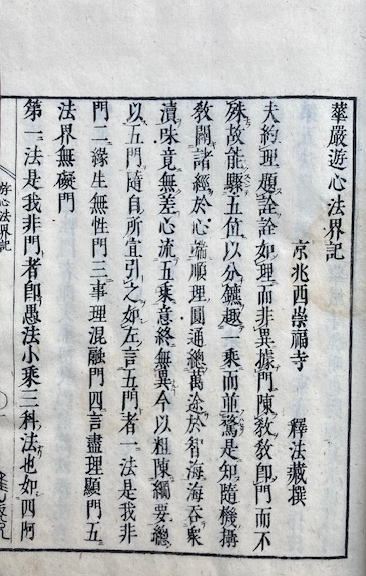 華嚴遊心法界記
京兆西崇福寺　釋法藏撰
夫約理題詮詮如理而非異據門陳教教即門而不
殊故能驟五位以分鑣趣一乘而並鶩是知隨機搙
教闢諸經於心端順理圓通總萬途於智海海吞衆
瀆味竟無差心流五乘意終無異今以粗陳綱要總
以五門隨自所宜引之如左言五門者一法是我非
門二緣生無性門三事理混融門四言盡理顯門五
法界無礙門
第一法是我非門者卽愚法小乘三科法也如四阿
遊心法界記